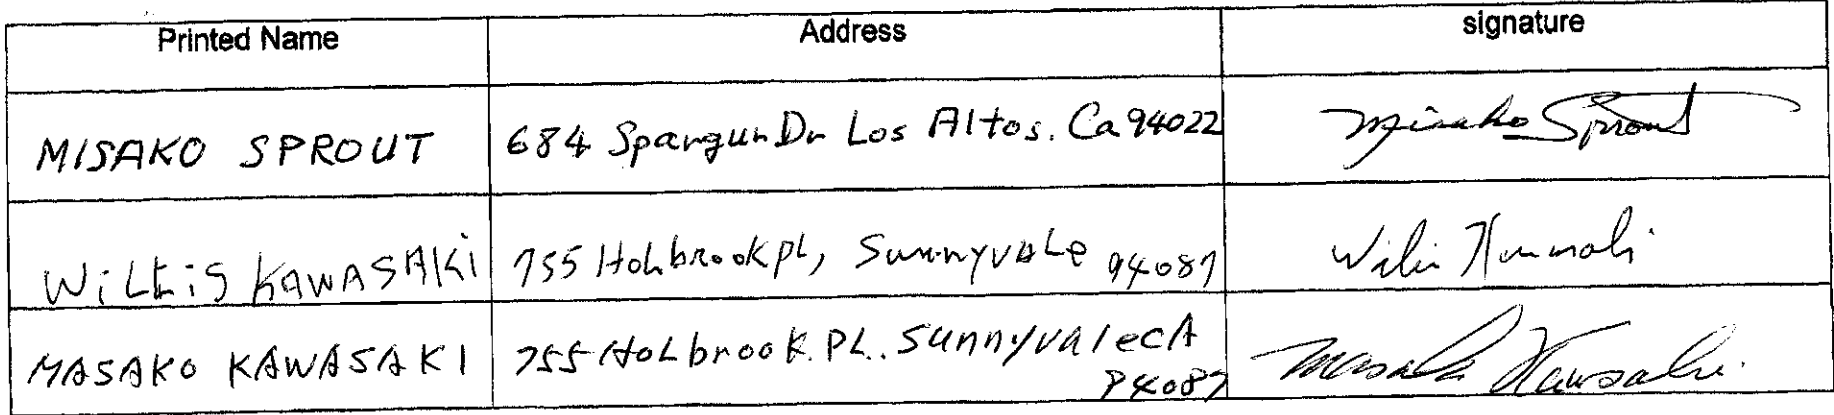 Printed Name Address signature
MISAKO SPROUT 684 Spargur Dr Los Altos. Ca 94022 Misako Sprout
WiLLiS KAWASAKi 755 HoLbrook pL, SunnyvaLe 94087 Willis Kawasaki
MASAKO KAWASAKI 755 HoLbrook PL. Sunnyvale CA
94087 Masako Kawasaki